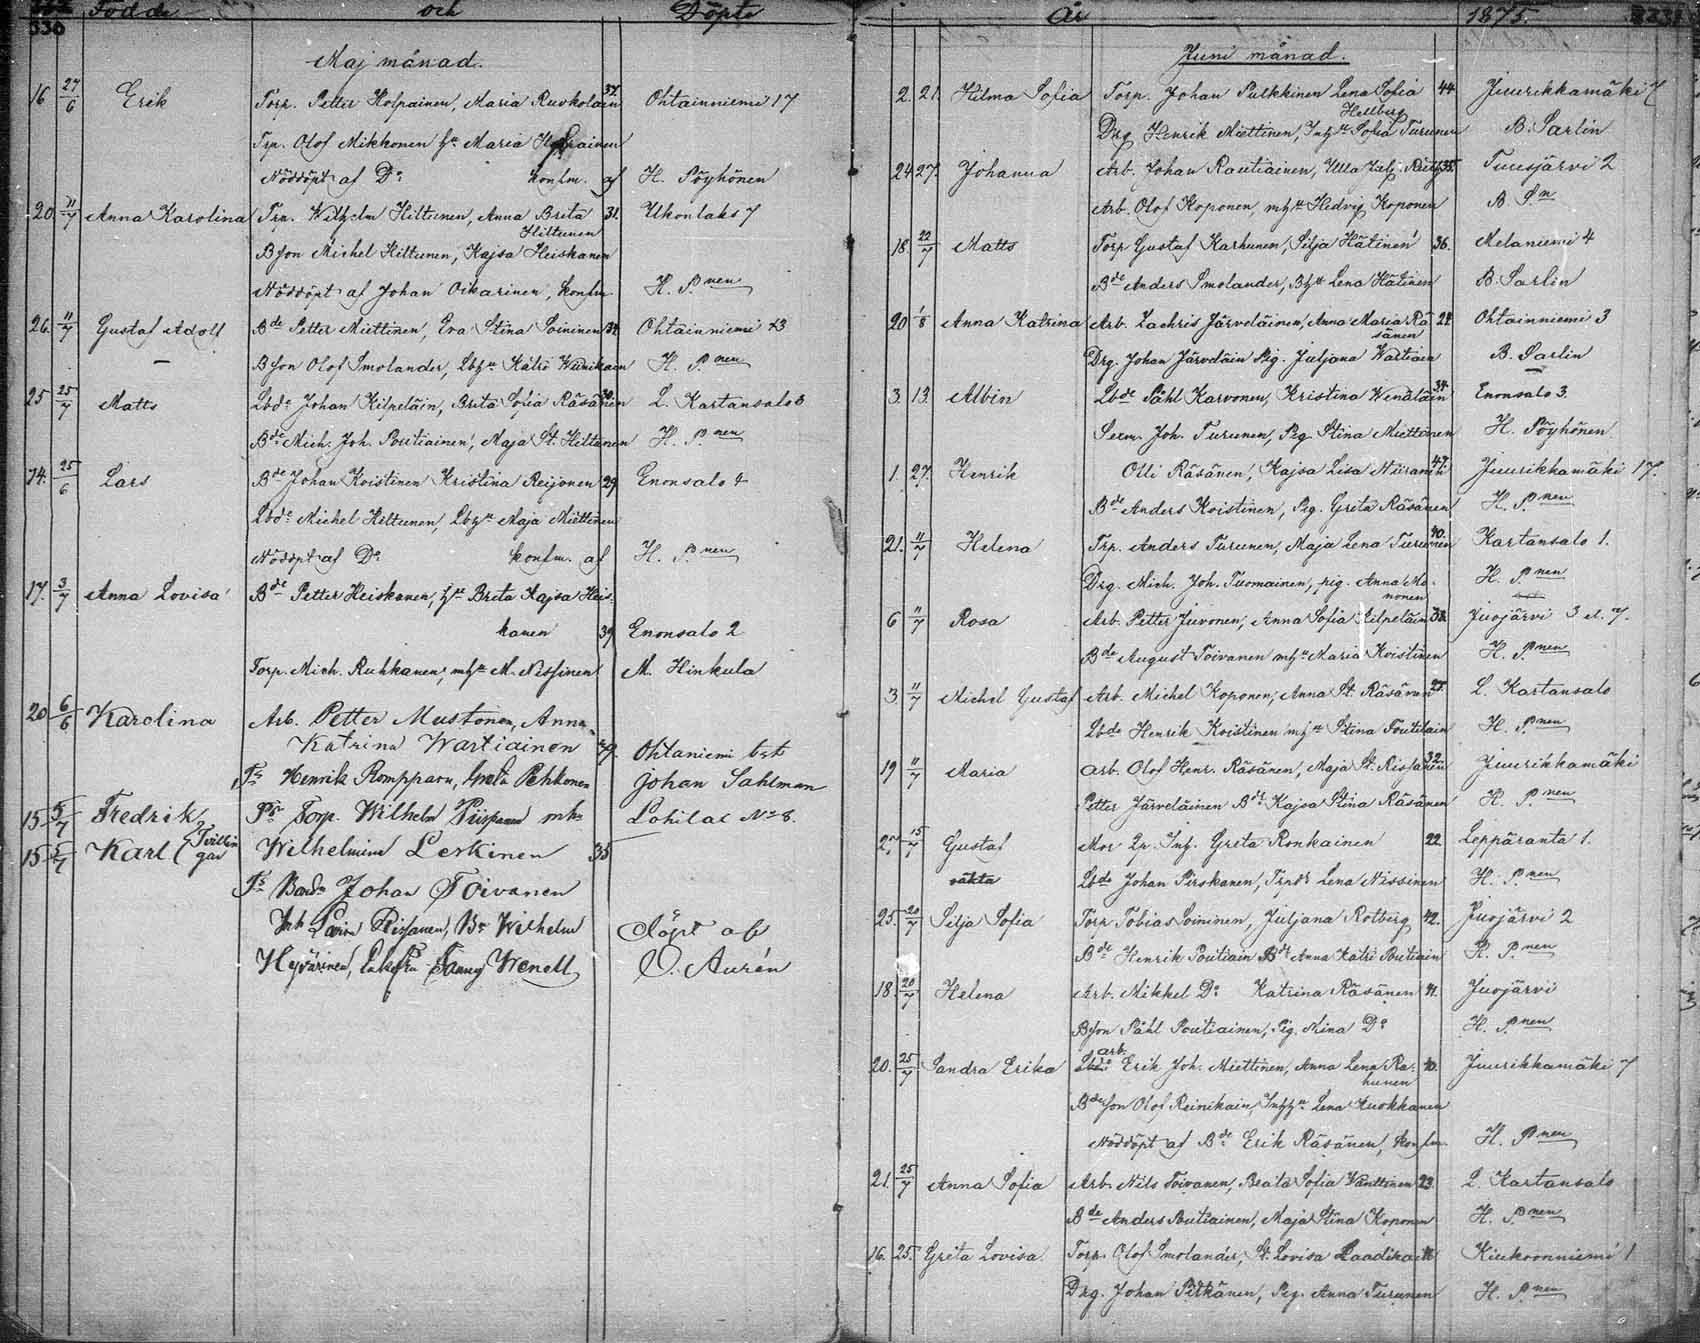 Födde och Döpte
330
Maj månad.
16 27/6 Erik Torp. Petter Holpainen, Maria Ruokolain 37. Ohtainniemi 17
Trp. Olof Mikkonen hu Maria
Nöddöpt af Do konfm. af H. Pöyhönen
20. 11/7 Anna Karolina Trp. Wilhelm Hiltunen, Anna Brita 31. Ukonlaks 7
Hiltunen
Bson Michel Hiltunen, Kajsa Heiskanen
Nöddöpt af Johan Oikarinen, konfm H. P.nen
26. 11/7 Gustaf Adolf Bde Petter Miettinen, Eva Stina Soininen 34. Ohtainniemi 23
Bson Olof Smolander, Lbhu Katri H. P.nen
25 25/7 Matts Lbde Johan Kilpeläin, Brita Sofia Räsänen L. Kartansalo 3
Bde Mich. Joh. Poutiainen, Maja St. Hiltunen H. P.nen
14. 25/6 Lars Bde Johan Koistinen Kristina Reijonen 29 Enonsalo 4
Lbde Michel Hiltunen, Lbhu Maja Miettinen
Nödöpt af Do konfm. af H. P.nen
17. 3/7 Anna Lovisa Bde Petter Heiskanen, hu Brita Kajsa Heis-
kanen 39 Enonsalo 2
Torp. Mich. Ruhkanen, mhu M. Nissinen M. Hinkula
20 6/6 Karolina Arb. Petter Mustonen, Anna
Katrina Wartiainen 49. Ohtaniemi
Fr Henrik Romppanen, Greta Pehkonen Johan Sahlman
15 5/7 Fredrik Torp. Wilhelm Piispanen mh: Lohilac No 8.
15 5/7 Karl Tvillin
gar Wilhelmina Leskinen 35
Johan Toivanen
Piispanen, Wilhelm Döpt af
Hyvärinen, Fanny Wenell O. Aurén
År 1875. 331
Juni månad.
2. 21. Hilma Sofia Torp. Johan Pulkkinen Lena Sofia 44 Juurikkamäki 7
Hellberg
Drg Henrik Miettinen, Inhu Sofia Turunen B. Sarlin
24 27. Johanna Arb. Johan Rautiainen, Ulla 35. Tuusjärvi 2
Arb. Olof Koponen, mhu Hedvig Koponen B S.n
18. 22/7 Matts Torp Gustaf Karhunen, Silja Hätinen 36. Melaniemi 4
Bde Anders Smolander, Bhu Lena Hätinen B. Sarlin
20 1/8 Anna Katrina Arb. Zachris Järveläinen, Anna Maria Rä- 24. Ohtainniemi 3
sänen
Drg. Johan Järveläin Pig. Juljana Wartiain B. Sarlin
3. 13. Albin Lbde Påhl Karvonen, Kristina Wenäläin 34. Enonsalo 3.
Sexm. Joh. Turunen, Pig. Stina Miettinen H. Pöyhönen
1. 27. Henrik Olli Räsänen, Kajsa Lisa Niiranen 47. Juurikkamäki 17.
Bde Anders Koistinen, Pig. Greta Räsänen H. P.nen
21. 11/7 Helena Trp. Anders Turunen, Maja Lena Turunen 40. Kartansalo 1.
Drg. Mich. Joh. Tuomainen, pig. Anna Mo- H. P.nen
nonen
6 11/7 Rosa Arb. Petter Juvonen, Anna Sofia Kilpeläin 38. Juojärvi 3 el. 7.
Bde August Toivanen mhu Maria Koistinen H. P.nen
3. 11/7 Michel Gustaf Arb. Michel Koponen, Anna St. Räsänen 25. L. Kartansalo
Lbde Henrik Koistinen mhu Stina Poutiain H. P.nen
19 11/7 Maria Arb. Olof Henr. Räsänen, Maja St. Rissanen 32. Juurikkamäki
Petter Järveläinen Bdr Kajsa Stina Räsänen H. P.nen
27 15/7 Gustaf Mor Qv. Inh. Greta Ronkainen 22 Leppäranta 1.
oäkta Lbde Johan Pirskanen, Trpdr Lena Nissinen H. P.nen
25. 20/7 Silja Sofia Torp Tobias Soininen, Juljana Rotberg 42. Juojärvi 2
Bde Henrik Poutiain Bdr Anna Katri Poutiain H. P.nen
18. 20/7 Helena Arb. Mikkel Do Katrina Räsänen 41. Juojärvi
Bson Påhl Poutiainen, Pig. Mina Do H. P.nen
20. 25/7 Sandra Erika arb. Erik Joh. Miettinen, Anna Lena Ra- 40. Juurikkamäki 7
hunen
Bdeson Olof Reinikain, Inhhu Lena Kuokkanen
Nöddöpt af Bde Erik Räsänen, konfm. H. P.nen
21. 25/7 Anna Sofia Arb. Nils Toivanen, Beata Sofia Wänttinen 23. L. Kartansalo
Bde Anders Poutiainen, Maja Stina Koponen H. P.nen
16. 25. Greta Lovisa Torp. Olof Smolander, St. Lovisa Laadikain Kiukoonniemi 1
Drg. Johan Pitkänen, Pig. Anna Turunen H. P.nen